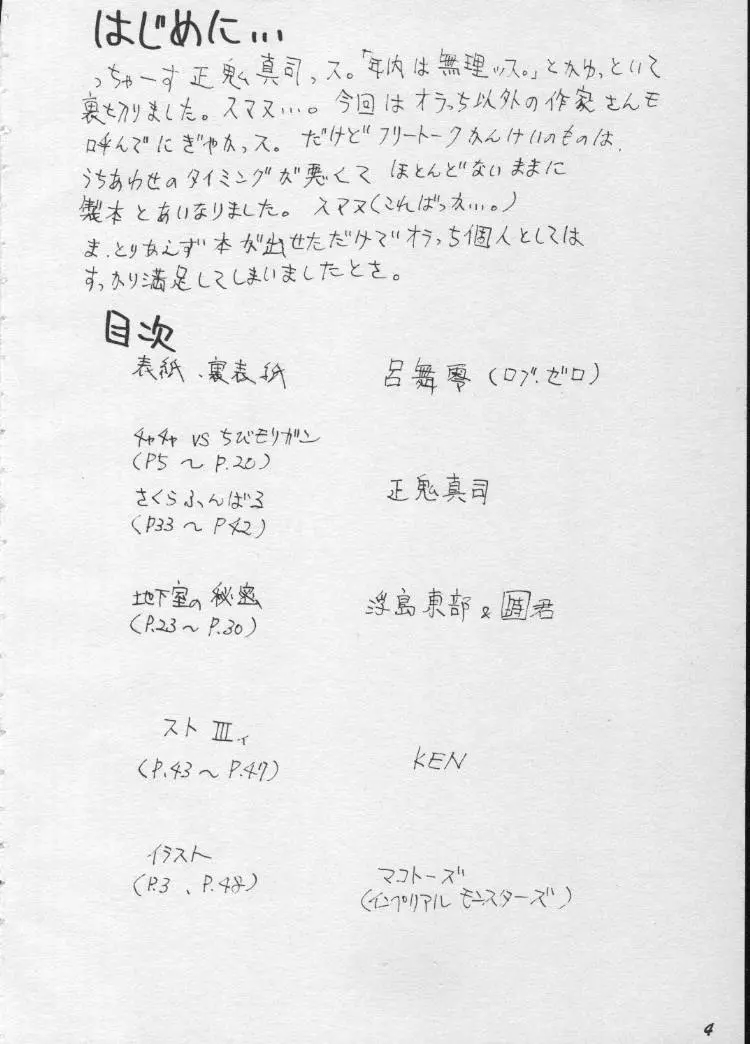 はじめに…
っちゃーす正鬼真司っス。「年内は無理ッス。」とかゆっといて
裏切りました。スマヌ…。今回はオラっち以外の作家さんも
呼んでにぎやかっス。だけどフリートークかんけいのものは、
うちあわせのタイミングが悪くてほとんどないままに
製本とあいなりました。スマヌ(こればっか…。)
ま、とりあえず本が出せただけでオラっち個人としては
すっかり満足してしまいましたとさ。
目次
表紙、裏表紙 呂舞零(ロブ・ゼロ)
チャチャ VS ちびモリガン
(P5 〜 P.20)
さくらふんばる 正鬼真司
(P33 〜 P42)
地下室の秘密 浮島東部 & 時君
(P.23 〜 P.30)
スト III KEN
(P.43 〜 P.47)
イラスト マコトーズ
(P.3 、P.48) (インプリアル モンスターズ)
4